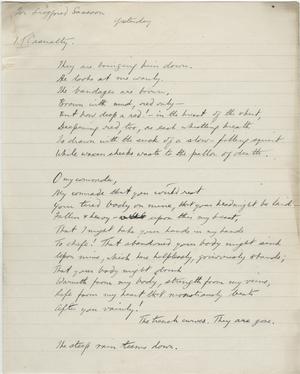 For Siegfried Sassoon
yesterday
1. Casualty.
They are bringing him down.
He looks at me wanly.
The bandages are brown,
Brown with mud, red only—
But how deep a red! — in the breast of the shirt,
Deepening red, too, as each whistling breath
Is drawn with the suck of a slow-filling squirt
While waxen cheeks waste to the pallor of death.
O my comrade,
My comrade that you could rest
Your tired body on mine, that your head might be laid—
Fallen & heavy — upon this my breast,
That I might take your hands in my hands
To chafe! That abandoned your body might sink
Upon mine, which here helplessly, grievously stands;
That your body might drink
Warmth from my body, strength from my veins,
Life from my heart that monstrously beats
After you vainly!
The trench curves. They are gone.
The steep rain teems down.